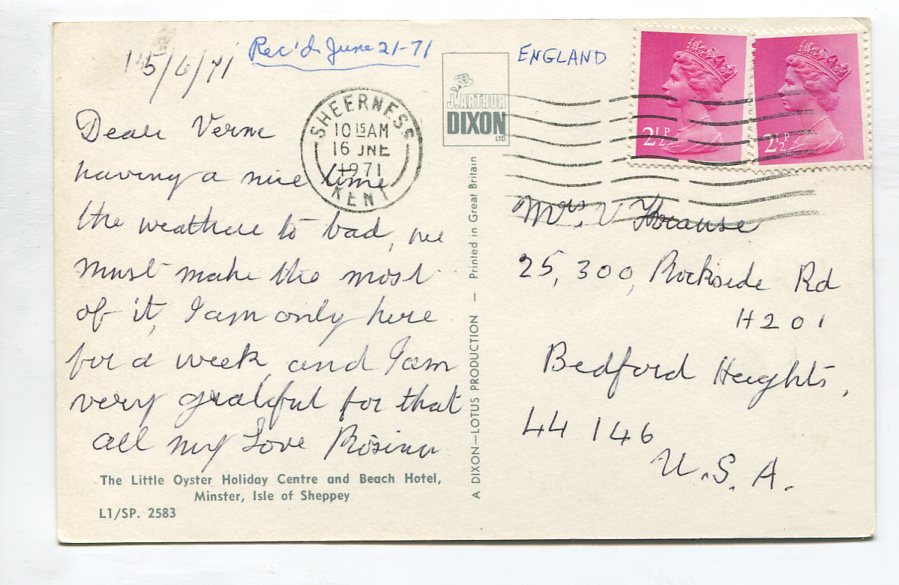 15/6/71
Rec'd. June 21-71
ENGLAND
J. ARTHUR
DIXON
LTD
2½P
2½P
SHEERNESS
10 15 AM
16 JNE
1971
KENT
Dear Verne
having a nice time
the weathere to bad, we
must make the most
of it, I am only here
for a week, and I am
very grateful for that
all my Love Rosina
The Little Oyster Holiday Centre and Beach Hotel,
Minster, Isle of Sheppey
L1/SP. 2583
A DIXON—LOTUS PRODUCTION — Printed in Great Britain
Mrs. V Krause
25, 300, Rockside Rd
H 201
Bedford Heights,
44 146
U.S.A.